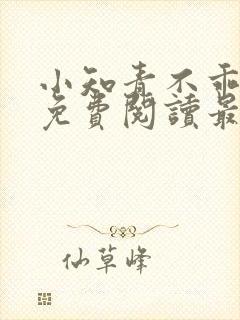 小知青不乖
免費閱讀最
仙草峰